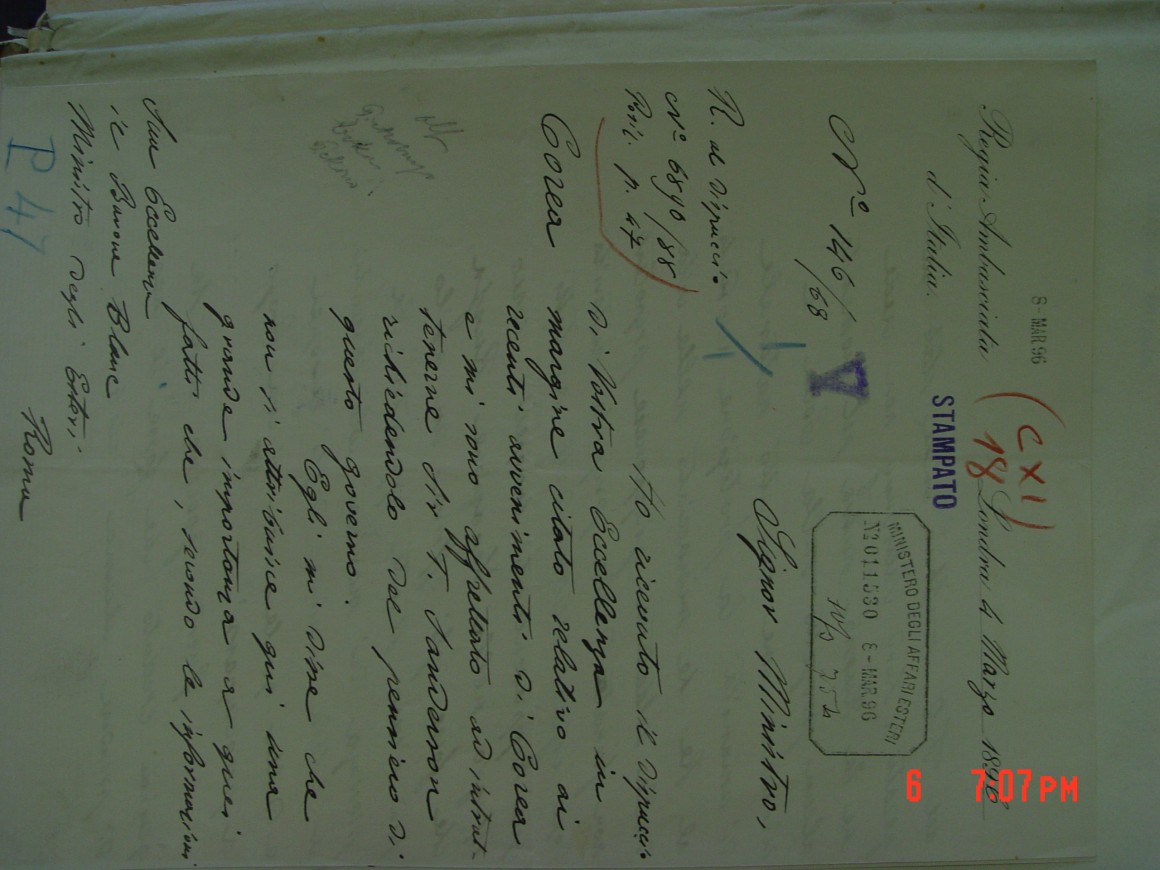 8-MAR.96
(CXI)
18
Regia Ambasciata
d'Italia.
Londra 4 Marzo 1896
STAMPATO
MINISTERO DEGLI AFFARI ESTERI
8-MAR.96
Nº 146/68
V
Signor Ministro,
R. al Dispaccio
Nº 6890/88
Pos. p. 47
Corea
Ho ricevuto il dispaccio
di Vostra Eccellenza in
margine citato relativo ai
recenti avvenimenti di Corea
e mi sono affrettato ad intrat-
tenerne Sir T. Sanderson
richiedendolo del pensiero di
questo governo.
Egli mi disse che
non si attribuisce qui una
grande importanza a quei
fatti che, secondo le informazioni
Sua Eccellenza
il Barone Blanc
Ministro degli Esteri
Roma
P 47
6 7:07 PM